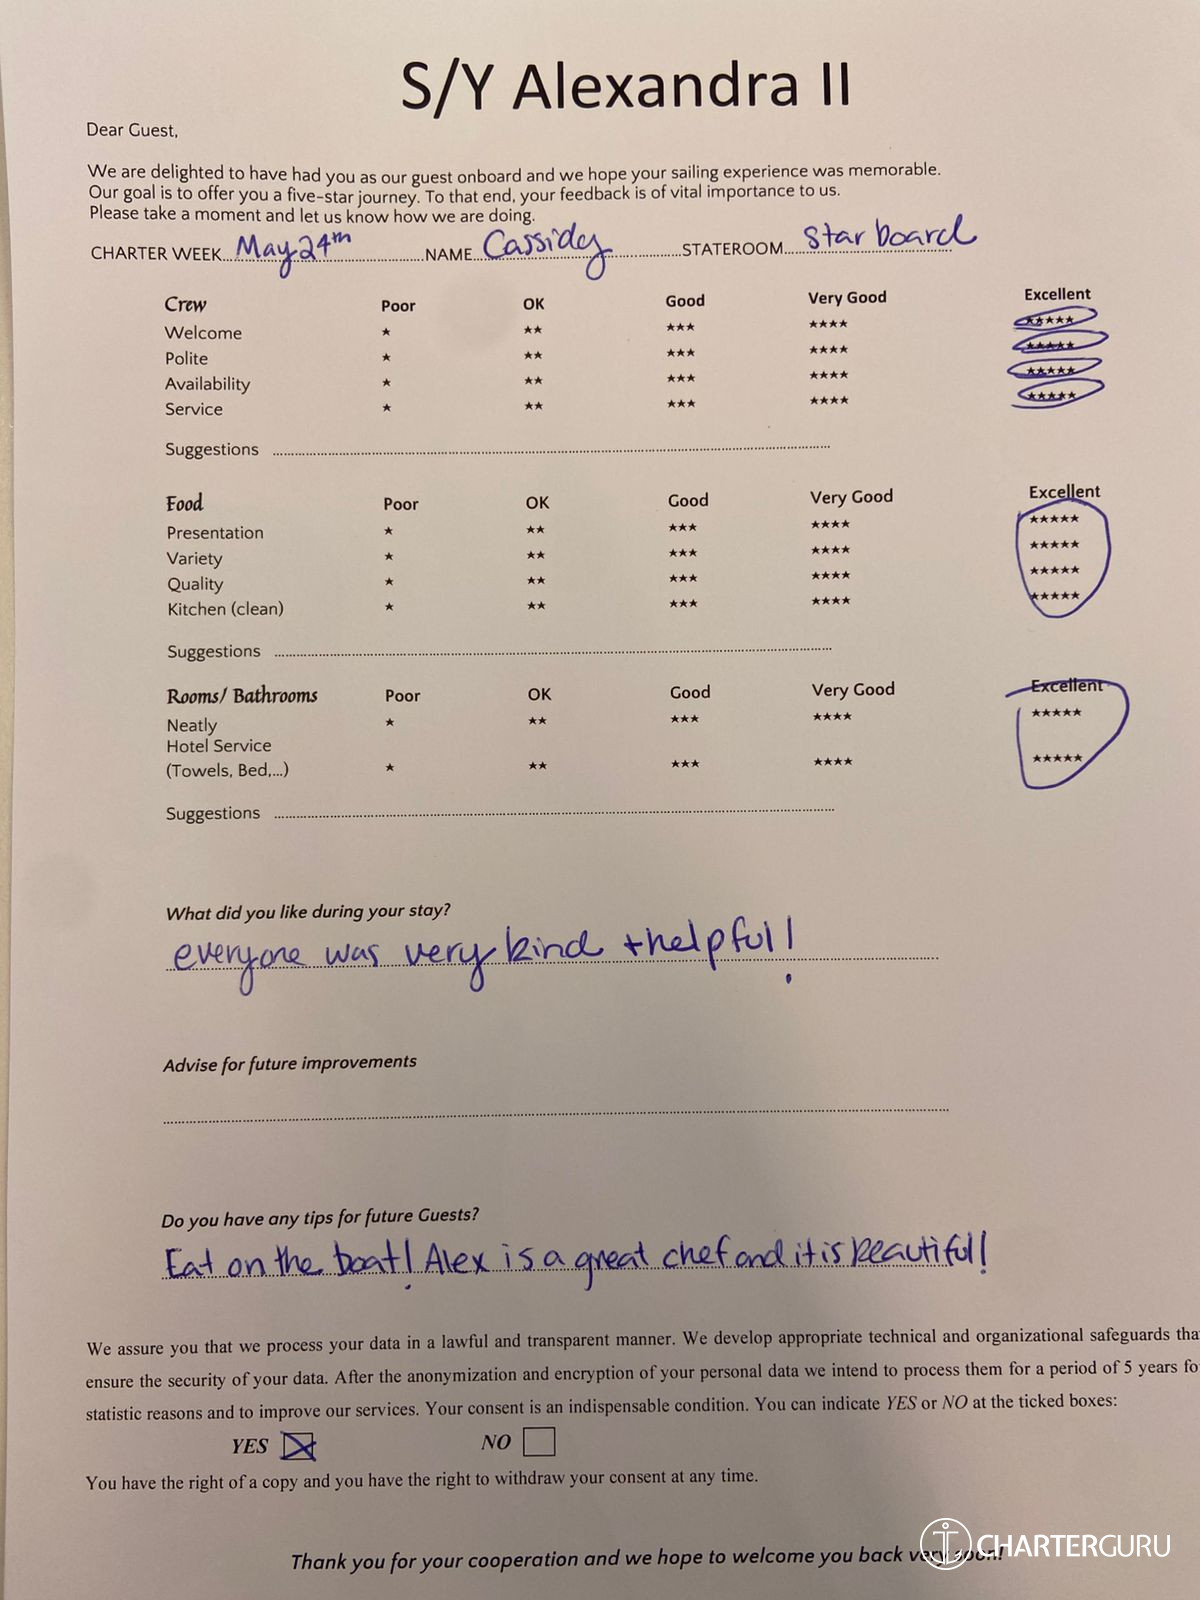 S/Y Alexandra II
Dear Guest,
We are delighted to have had you as our guest onboard and we hope your sailing experience was memorable.
Our goal is to offer you a five-star journey. To that end, your feedback is of vital importance to us.
Please take a moment and let us know how we are doing.
CHARTER WEEK May 24th NAME Cassidy STATEROOM starboard
Crew Poor OK Good Very Good Excellent
Welcome ★ ★★ ★★★ ★★★★ ★★★★★
Polite ★ ★★ ★★★ ★★★★ ★★★★★
Availability ★ ★★ ★★★ ★★★★ ★★★★★
Service ★ ★★ ★★★ ★★★★ ★★★★★
Suggestions
Food Poor OK Good Very Good Excellent
Presentation ★ ★★ ★★★ ★★★★ ★★★★★
Variety ★ ★★ ★★★ ★★★★ ★★★★★
Quality ★ ★★ ★★★ ★★★★ ★★★★★
Kitchen (clean) ★ ★★ ★★★ ★★★★ ★★★★★
Suggestions
Rooms/ Bathrooms Poor OK Good Very Good Excellent
Neatly ★ ★★ ★★★ ★★★★ ★★★★★
Hotel Service
(Towels, Bed,...) ★ ★★ ★★★ ★★★★ ★★★★★
Suggestions
What did you like during your stay?
everyone was very kind + helpful!
Advise for future improvements
Do you have any tips for future Guests?
Eat on the boat! Alex is a great chef and it is beautiful!
We assure you that we process your data in a lawful and transparent manner. We develop appropriate technical and organizational safeguards tha
ensure the security of your data. After the anonymization and encryption of your personal data we intend to process them for a period of 5 years fo
statistic reasons and to improve our services. Your consent is an indispensable condition. You can indicate YES or NO at the ticked boxes:
YES NO
You have the right of a copy and you have the right to withdraw your consent at any time.
Thank you for your cooperation and we hope to welcome you back very soon!
CHARTERGURU